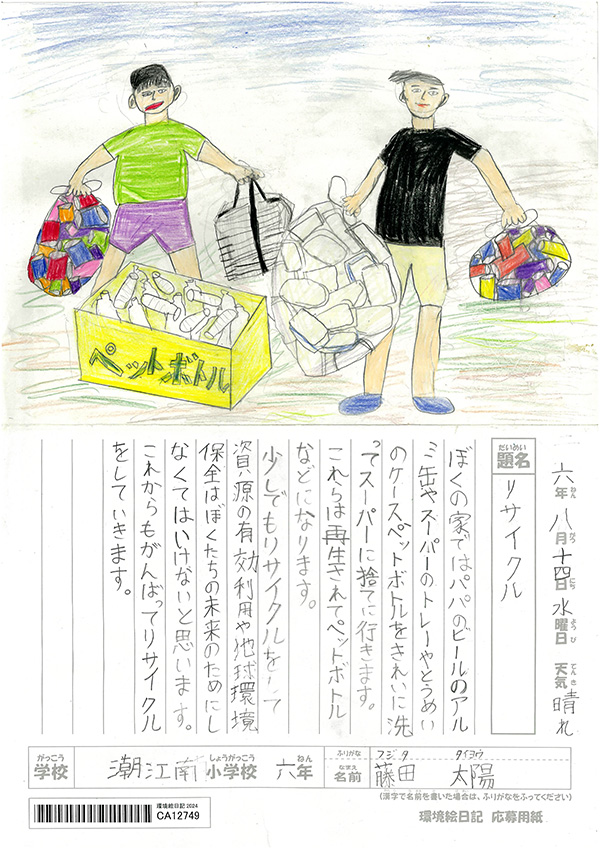 ペットボトル
六年 八月 十四日 水曜日 天気 晴れ
ねん がつ にち ようび てんき
だいめい
題名 リサイクル
ぼくの家ではパパのビールのアル
ミ缶やスーパーのトレーやとうめい
のケースペットボトルをきれいに洗
ってスーパーに捨てに行きます。
これらは再生されてペットボトル
などになります。
少しでもリサイクルをして
資源の有効利用や地球環境
保全はぼくたちの未来のためにし
なくてはいけないと思います。
これからもがんばってリサイクル
をしていきます。
がっこう しょうがっこう ねん ふりがな フジタ タイヨウ
学校 潮江南 小学校 六年 なまえ 名前 藤田 太陽
(漢字で名前を書いた場合は、ふりがなをふってください)
環境絵日記 2024
CA12749
環境絵日記 応募用紙